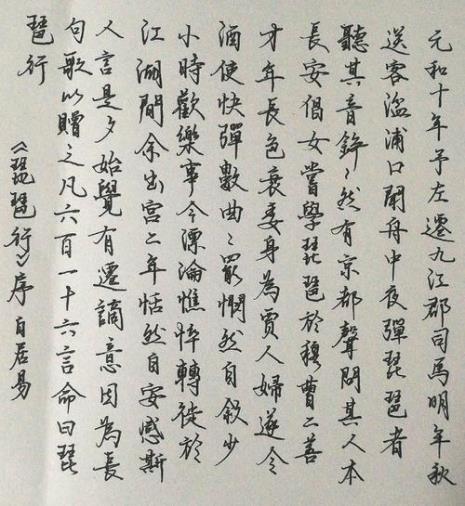 元和十年予左遷九江郡司馬明年秋
送客湓浦口聞舟中夜彈琵琶者
聽其音錚〻然有京都聲問其人本
長安倡女嘗學琵琶於穆曹二善
才年長色衰委身為賈人婦遂令
酒使快彈數曲〻罷憫然自敘少
小時歡樂事今漂淪憔悴轉徙於
江湖間余出官二年恬然自安感斯
人言是夕始覺有遷謫意因為長
句歌以贈之凡六百一十六言命曰琵
琶行
《琵琶行》序 白居易